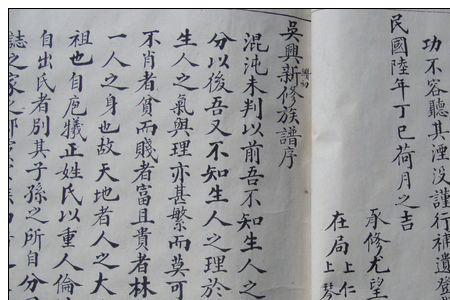 功不容聽其湮没謹行補遺登
民國陸年丁巳荷月之吉
承修尤望
上仁
在局上琴
吳興新修族譜序
混沌未判以前吾不知生人之
分以後吾又不知生人之理於
生人之氣與理亦甚繁而莫可
不肖者貧而賤者富且貴者林
一人之身也故天地者人之大
祖也自庖犧正姓氏以重人倫
自出氏者別其子孫之所自分
誌之家之